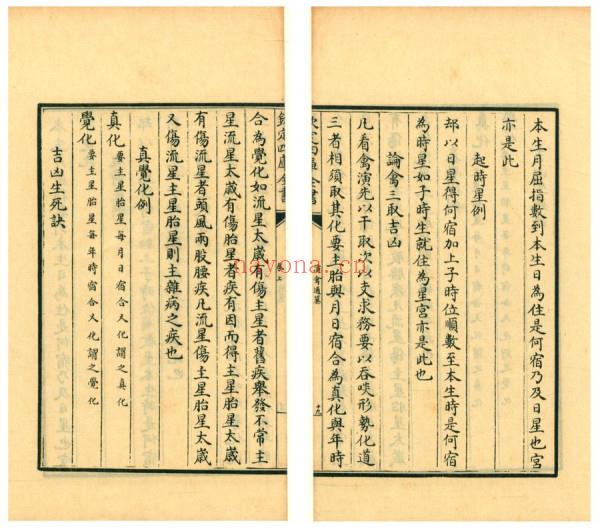 本生月屈指數到本生日為住是何宿乃及日星也宫
亦是此
起時星例
却以日星得何宿加上子時位順數至本生時是何宿
為時星如子時生就住為星宫亦是此也
論禽三取吉凶
凡看禽演先以干取次以支求務要以吞啖形勢化道
三者相須取其化要主胎與月日宿合為真化與年時
欽定四庫全書
禽遁
合為覺化如流星太歲有傷主星者舊疾舉發不常主
星流星太歲有傷胎星者疾有因而得主星胎星太歲
有傷流星者頭風兩股腰疾凡流星傷主星胎星太歲
又傷流星主星胎星則主雜病之疾也
真覺化例
真化要主星胎星每月日宿合又化謂之真化
覺化要主星胎星每年時宿合又化謂之覺化
吉凶生死訣
nayona.cn